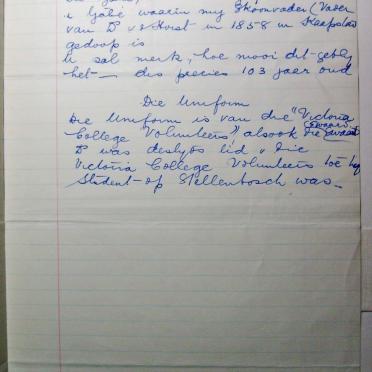 'n Gabê waarin my Skoonvader (Vader
van D v d Horst in 1858 in Kaapstad
gedoop is
U sal merk, hoe mooi dit gebly
het — dis presies 103 jaar oud
Die Uniform
Die Uniform is van die "Victoria
College Volunteers" alsook die swaard
D was destyds lid v die
Victoria College Volunteers toe hy
Student op Stellenbosch was —